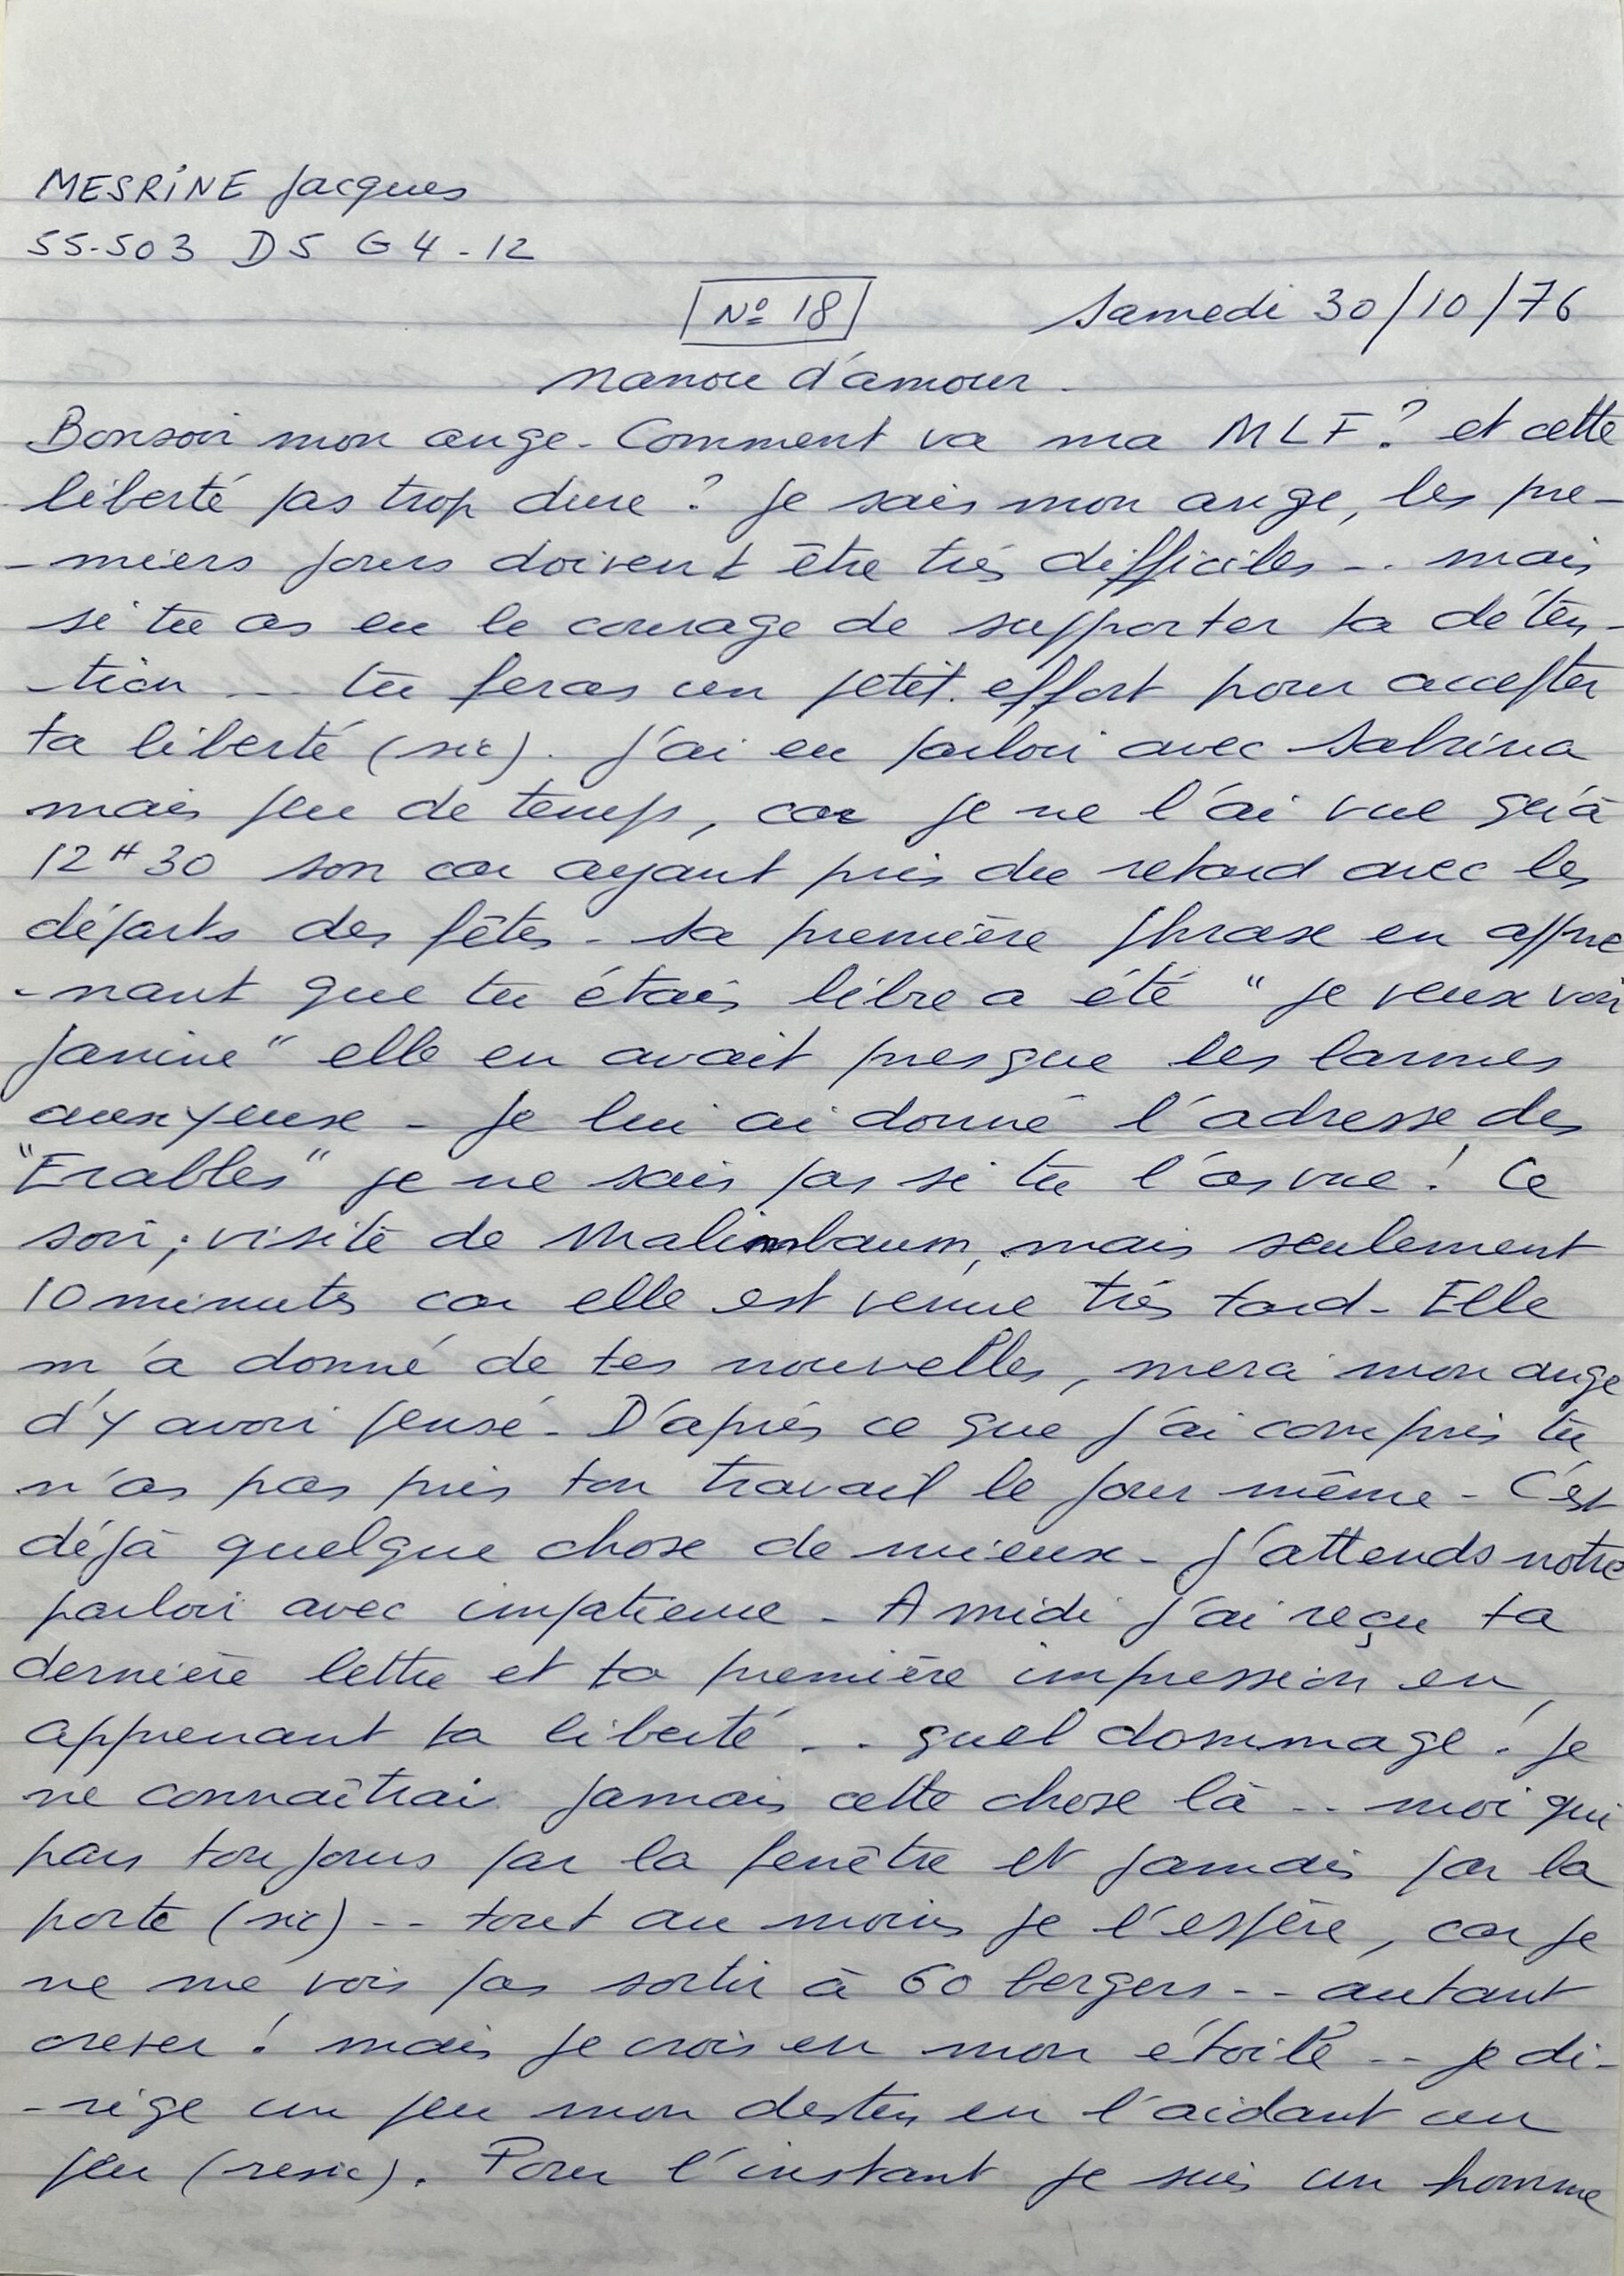 MESRINE Jacques
55-503 D5 G4-12
N° 18
Samedi 30/10/76
nanou d'amour.
Bonsoir mon ange - Comment va ma MLF ? et cette
liberté pas trop dure ? Je sais mon ange, les pre-
-miers jours doivent être très difficiles -. mais
si tu as eu le courage de supporter ta déten-
-tion -.. tu feras un petit effort pour accepter
ta liberté (sic). J'ai eu parloir avec Sabrina
mais peu de temps, car je ne l'ai vue qu'à
12H30 son car ayant pris du retard avec les
départs des fêtes - sa première phrase en appre
-nant que tu étais libre a été " je veux voir
Janine" elle en avait presque les larmes
aux yeux - Je lui ai donné l'adresse des
"Erables" je ne sais pas si tu l'as vue ! Ce
soir ; visite de Malinbaum, mais seulement
10 minutes car elle est venue très tard - Elle
m'a donné de tes nouvelles, merci mon ange
d'y avoir pensé - D'après ce que j'ai compris tu
n'as pas pris ton travail le jour même - C'est
déjà quelque chose de mieux - J'attends notre
parloir avec impatience - A midi j'ai reçu ta
dernière lettre et ta première impression en
apprenant ta liberté -. quel dommage ! je
ne connaîtrai jamais cette chose là -.. moi qui
pars toujours par la fenêtre et jamais par la
porte (sic) -- tout au moins je l'espère, car je
ne me vois pas sortir à 60 bergers -- autant
crever ! mais je crois en mon étoile -- je di-
-rige un peu mon destin en l'aidant un
peu (resic). Pour l'instant je suis un homme